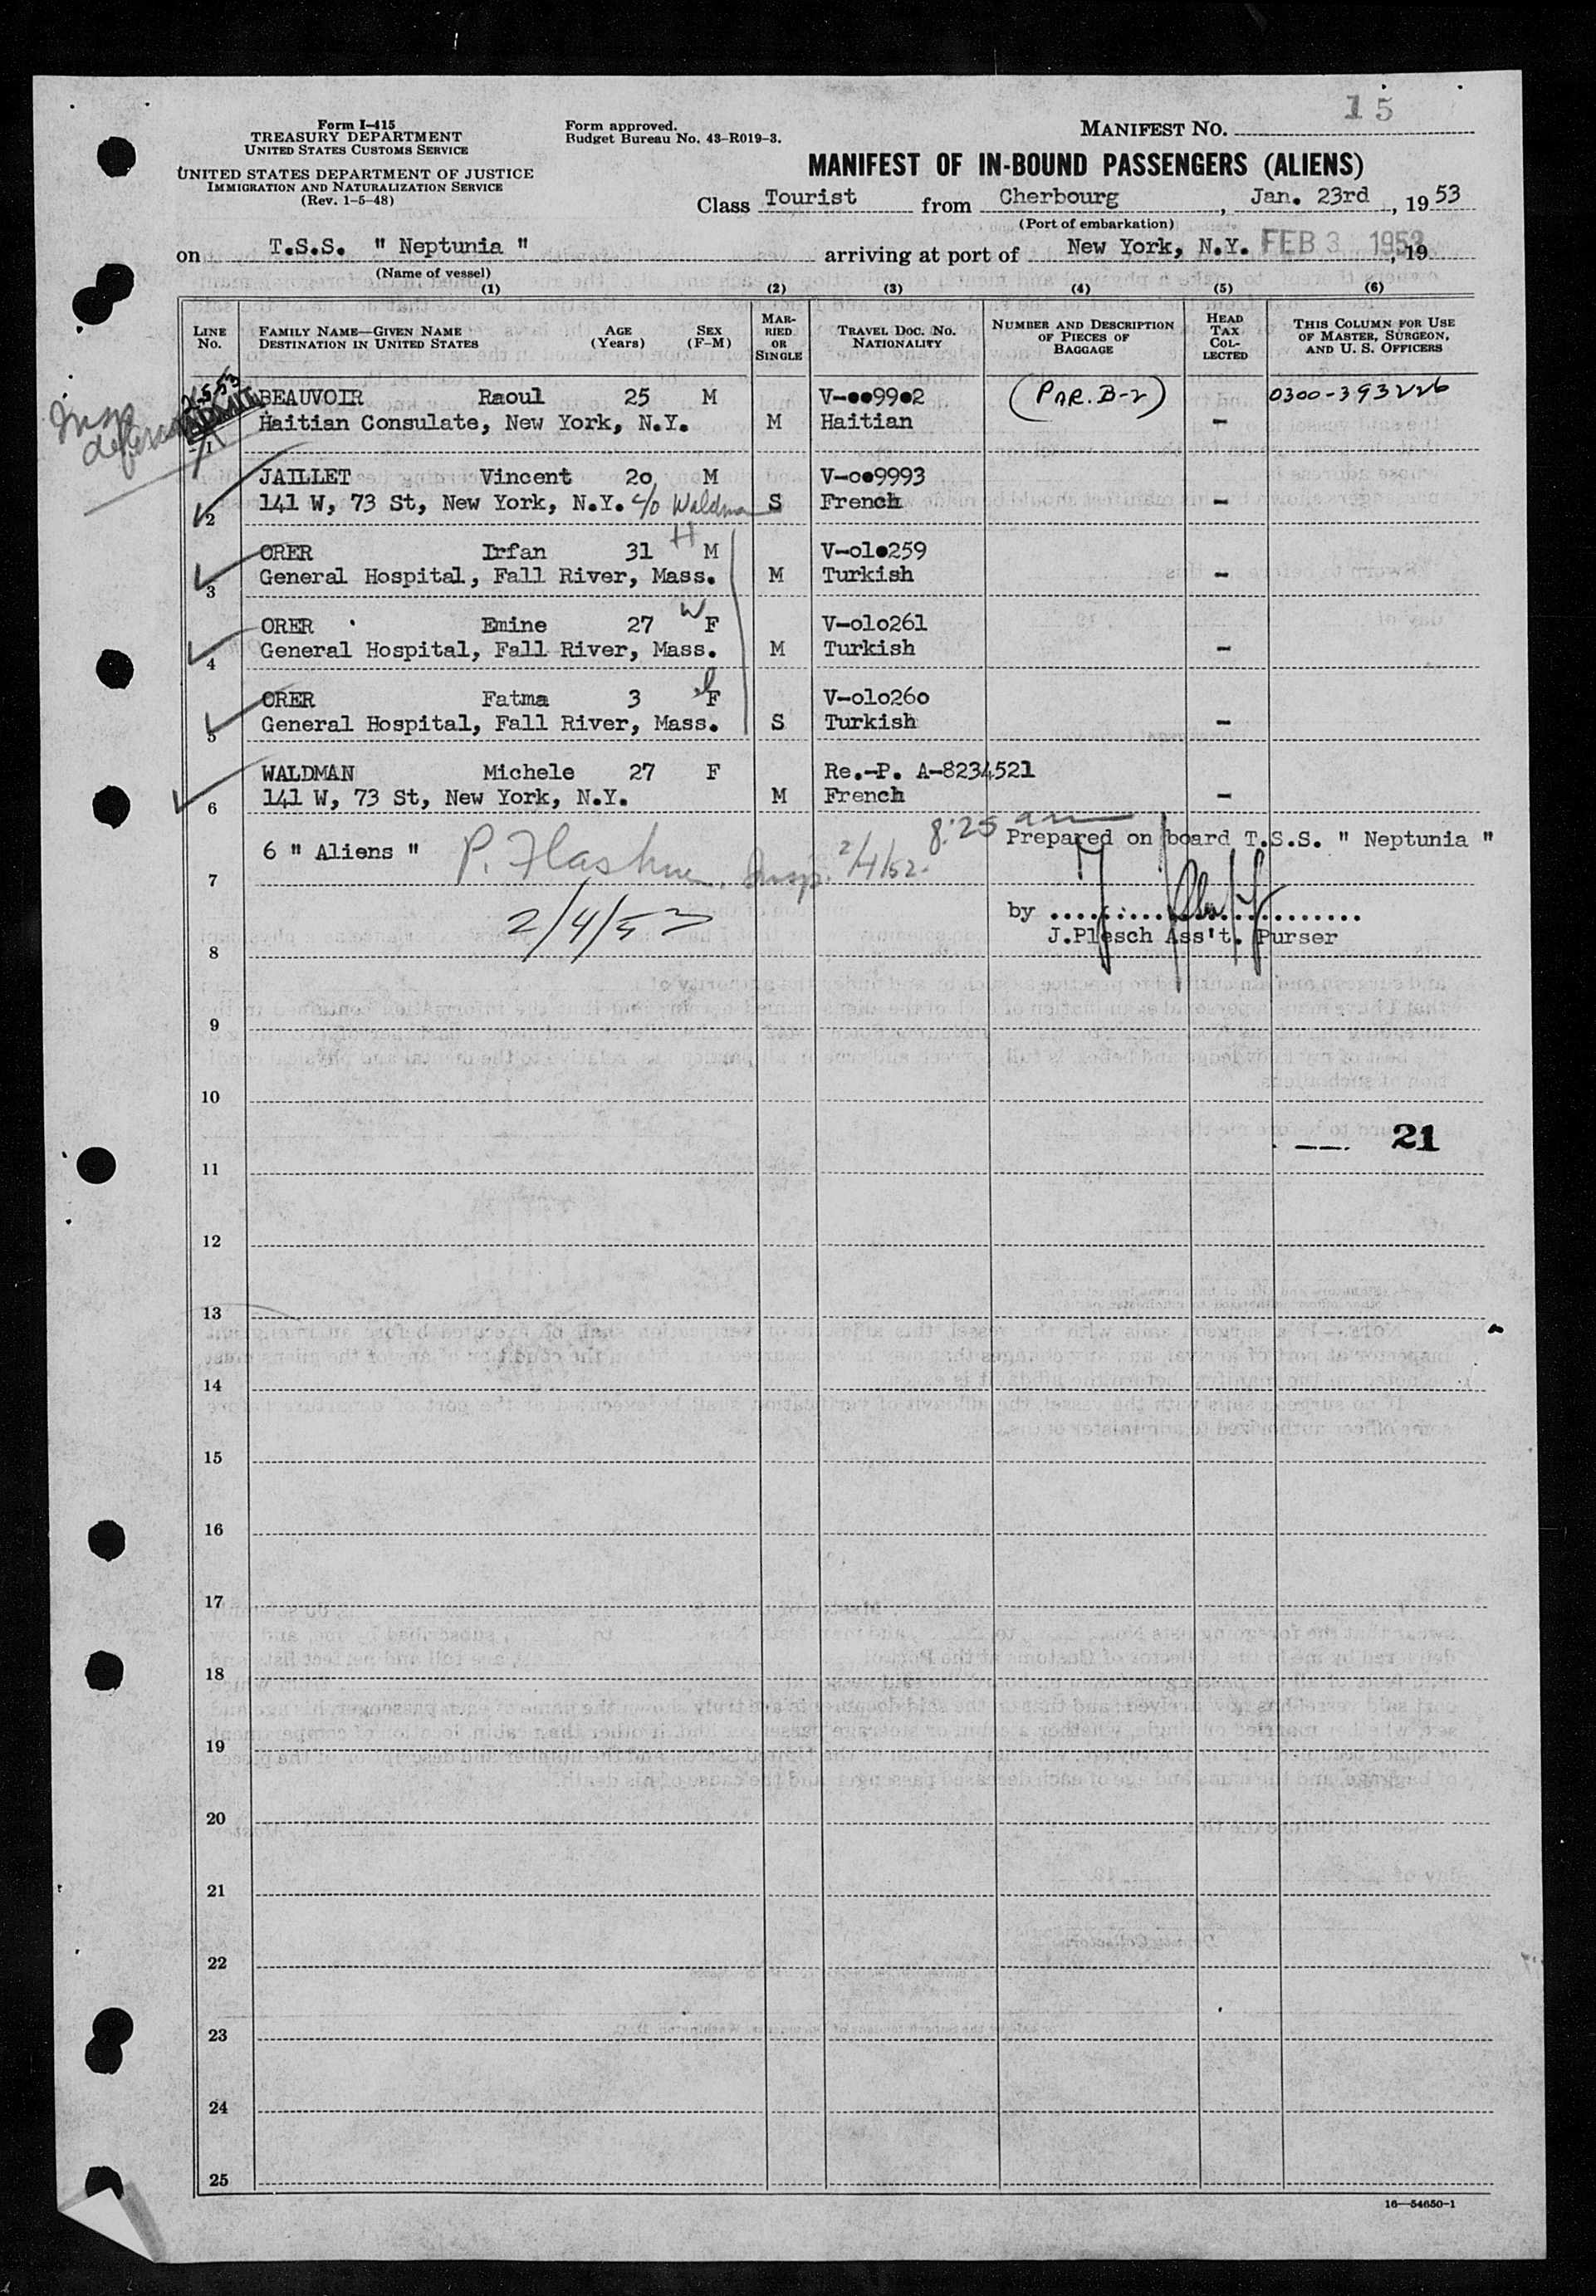 15
Form I-415
TREASURY DEPARTMENT
UNITED STATES CUSTOMS SERVICE
UNITED STATES DEPARTMENT OF JUSTICE
IMMIGRATION AND NATURALIZATION SERVICE
(Rev. 1-5-48)
Form approved.
Budget Bureau No. 43-R019-3.
MANIFEST NO.
MANIFEST OF IN-BOUND PASSENGERS (ALIENS)
Class Tourist from Cherbourg, Jan. 23rd, 1953
(Port of embarkation)
on T.S.S. " Neptunia " arriving at port of New York, N.Y. FEB 3 1953, 19
(Name of vessel)
(1) (2) (3) (4) (5) (6)
LINE NO.
FAMILY NAME—GIVEN NAME
DESTINATION IN UNITED STATES
AGE (Years)
SEX (F-M)
MARRIED OR SINGLE
TRAVEL DOC. NO.
NATIONALITY
NUMBER AND DESCRIPTION OF PIECES OF BAGGAGE
HEAD TAX COLLECTED
THIS COLUMN FOR USE OF MASTER, SURGEON, AND U. S. OFFICERS
BEAUVOIR Raoul 25 M V-oo99o2 (PAR. B-2) 0300-393226
1 Haitian Consulate, New York, N.Y. M Haitian -
JAILLET Vincent 2o M V-oo9993
2 141 W, 73 St, New York, N.Y. c/o Waldman S French -
ORER Irfan 31 H M V-olo259
3 General Hospital, Fall River, Mass. M Turkish -
ORER Emine 27 W F V-olo261
4 General Hospital, Fall River, Mass. M Turkish -
ORER Fatma 3 F V-olo26o
5 General Hospital, Fall River, Mass. S Turkish -
WALDMAN Michele 27 F Re.-P. A-8234521
6 141 W, 73 St, New York, N.Y. M French -
8:25 am
6 " Aliens " P. Insp. 2/4/52. Prepared on board T.S.S. " Neptunia "
7
2/4/53 by
J.Plesch Ass't. Purser
8
9
10
21
11
12
13
14
15
16
17
18
19
20
21
22
23
24
25
16—54650-1